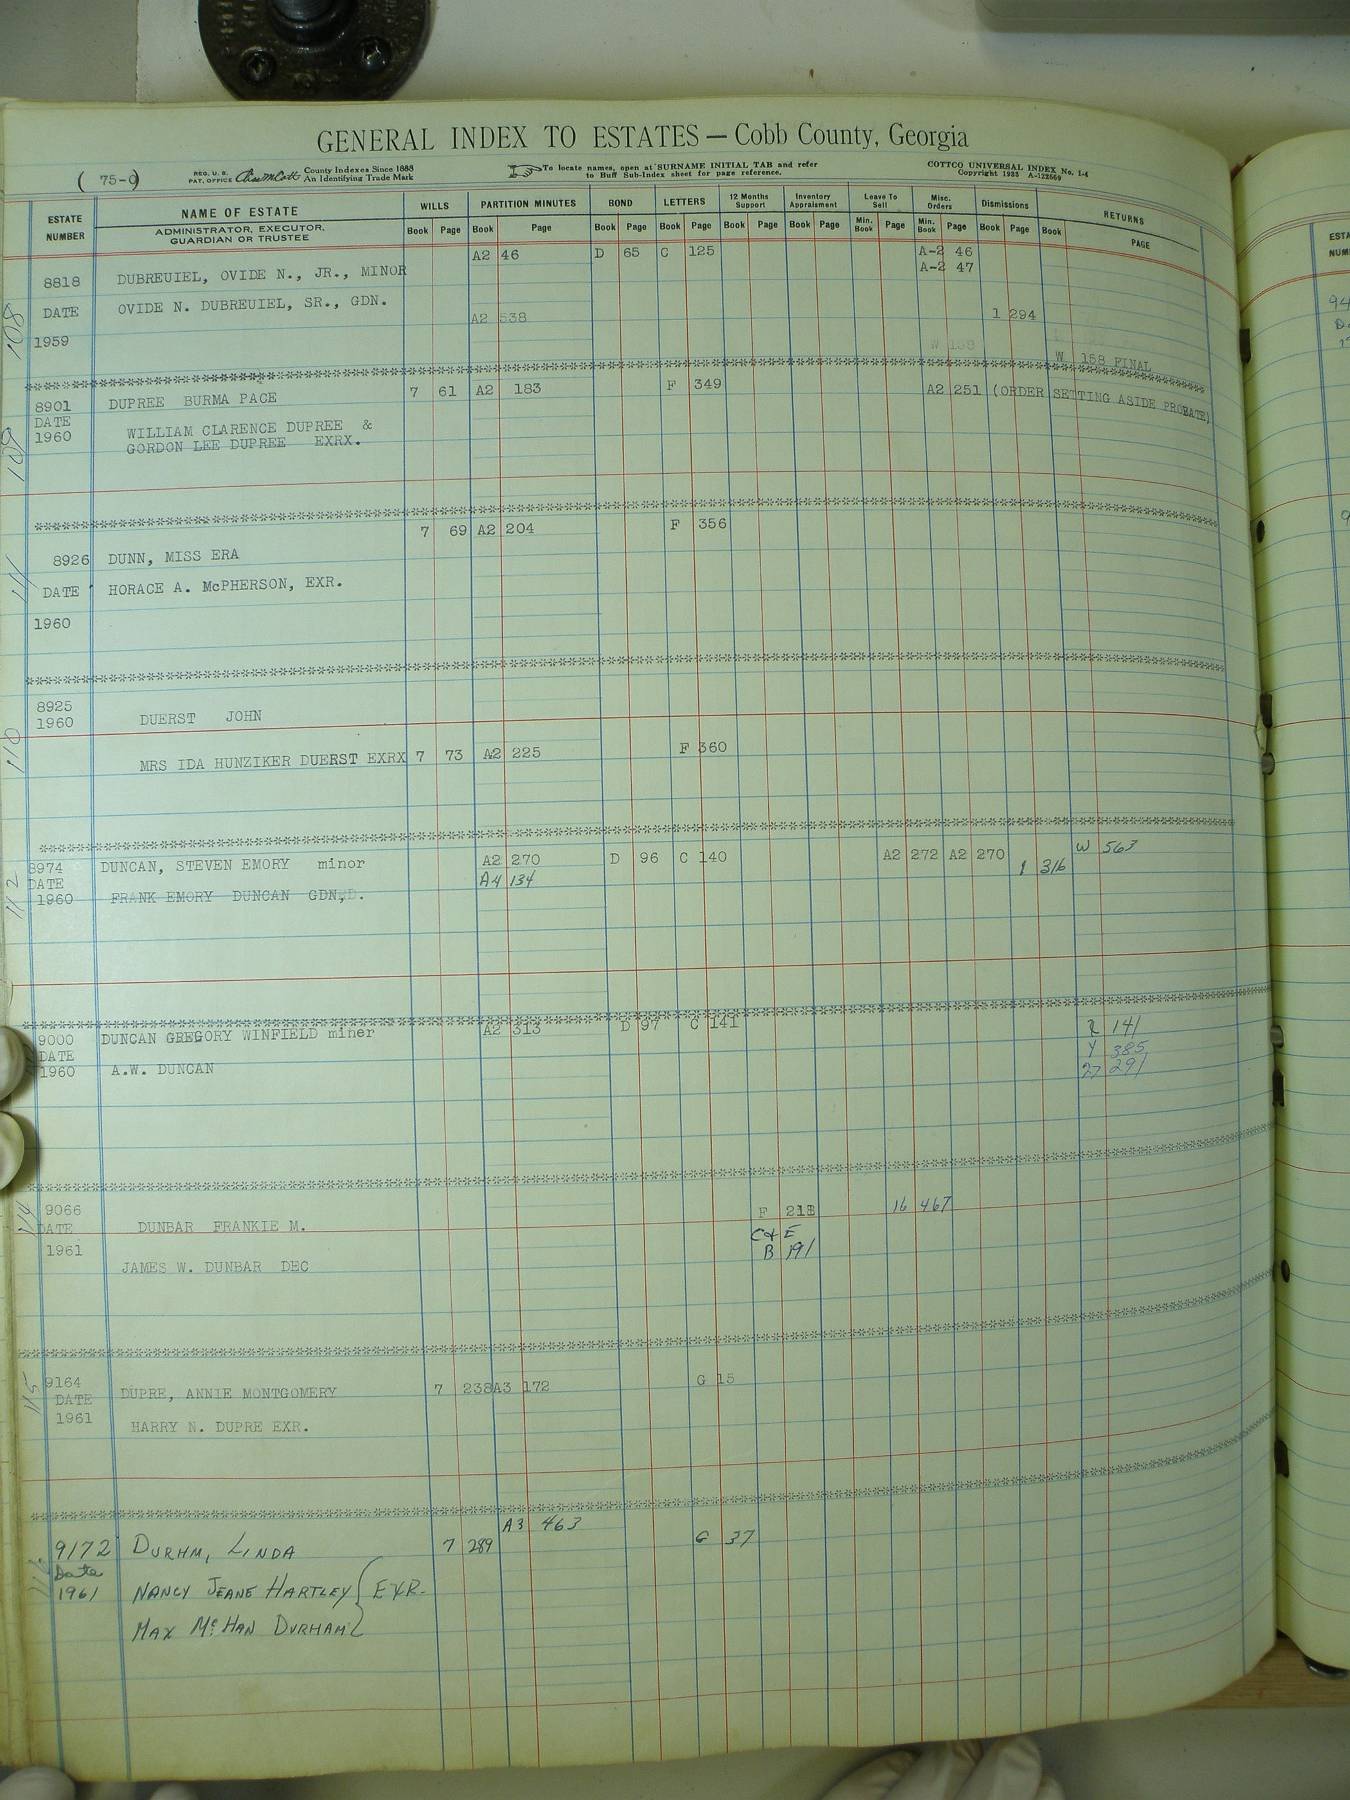 GENERAL INDEX TO ESTATES — Cobb County, Georgia
( 75-0)
REG. U. S. PAT. OFFICE County Indexes Since 1888 An Identifying Trade Mark
To locate names, open at SURNAME INITIAL TAB and refer to Buff Sub-Index sheet for page reference.
COTTCO UNIVERSAL INDEX No. 1-4
Copyright 1923 A-122569
ESTATE NUMBER
NAME OF ESTATE
ADMINISTRATOR, EXECUTOR, GUARDIAN OR TRUSTEE
WILLS PARTITION MINUTES BOND LETTERS 12 Months Support Inventory Appraisment Leave To Sell Misc. Orders Dismissions RETURNS
Book Page Book Page Book Page Book Page Book Page Book Page Min. Book Page Min. Book Page Book Page Book PAGE
A2 46 D 65 C 125 A-2 46
A-2 47
8818 DUBREUIEL, OVIDE N., JR., MINOR
DATE OVIDE N. DUBREUIEL, SR., GDN.
A2 538 1 294
108 1959
W 158 FINAL
8901 DUPREE BURMA PACE 7 61 A2 183 F 349 A2 251 (ORDER SETTING ASIDE PROBATE)
DATE
109 1960 WILLIAM CLARENCE DUPREE &
GORDON LEE DUPREE EXRX.
7 69 A2 204 F 356
8926 DUNN, MISS ERA
111 DATE HORACE A. McPHERSON, EXR.
1960
8925
1960 DUERST JOHN
110 MRS IDA HUNZIKER DUERST EXRX 7 73 A2 225 F 360
8974 DUNCAN, STEVEN EMORY minor A2 270 D 96 C 140 A2 272 A2 270 1 316 W 563
112 DATE A4 134
1960 FRANK EMORY DUNCAN GDN,.
9000 DUNCAN GREGORY WINFIELD miner A2 313 D 97 C 141 R 141
DATE Y 385
1960 A.W. DUNCAN 27 291
114 9066 F 213 16 467
DATE DUNBAR FRANKIE M. C& E
1961 B 191
JAMES W. DUNBAR DEC
115 9164
DATE DUPRE, ANNIE MONTGOMERY 7 238 A3 172 G 15
1961 HARRY N. DUPRE EXR.
A3 463
9172 DURHM, LINDA 7 289 G 37
Date
1961 NANCY JEANE HARTLEY { EXR.
MAX McHAN DURHAM